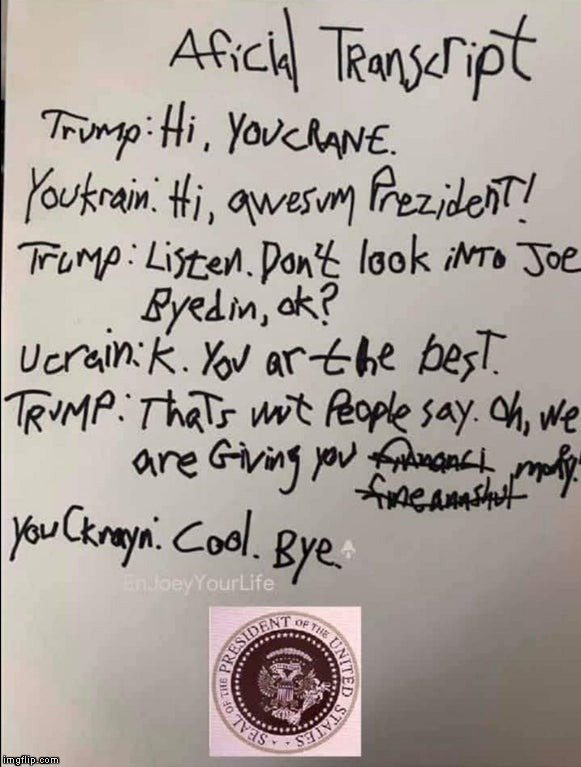 Aficial Transcript
Trump: Hi, YOUCRANE.
Youkrain: Hi, awesum Prezident!
Trump: Listen. Don't look iNTo Joe
Byedin, ok?
Ucrain: K. You ar the best.
TRUMP: Thats wut People say. Oh, we
are Giving you
You Ckrayn: Cool. Bye.
EnJoeyYourLife
SEAL OF THE PRESIDENT OF THE UNITED STATES
imgflip.com